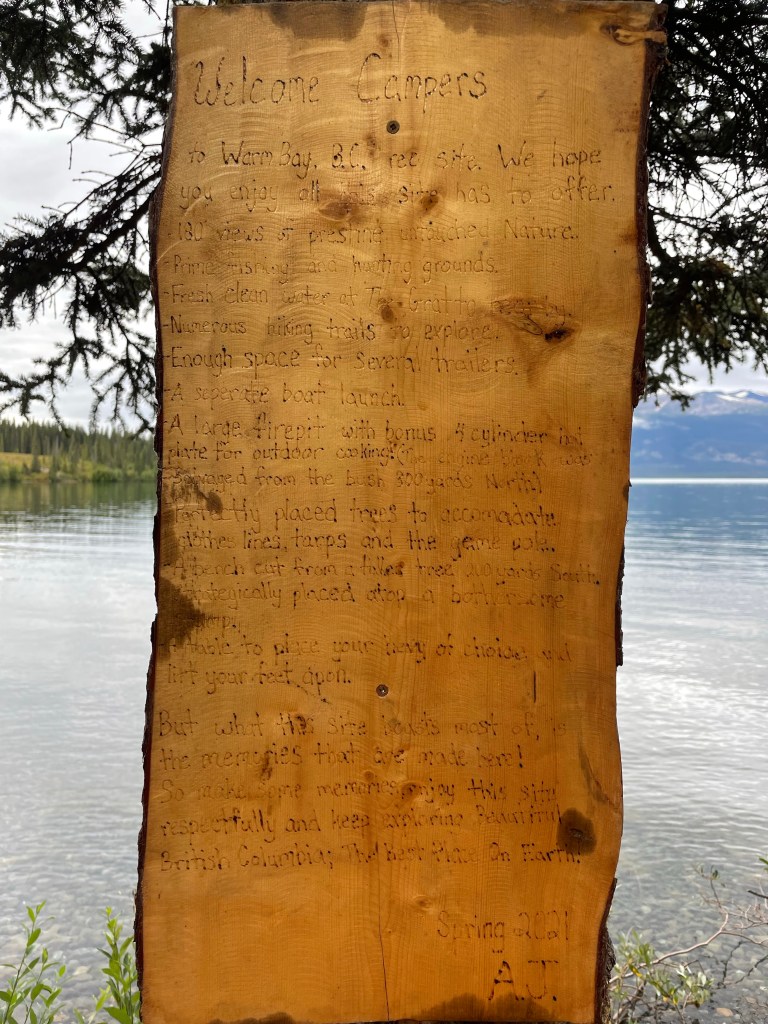 Welcome Campers
to Warm Bay, B.C. rec site. We hope
you enjoy all this site has to offer.
-180° views of prestine untouched Nature.
-Prime fishing and hunting grounds.
-Fresh clean water at The Grotto near by.
-Numerous hiking trails to explore.
-Enough space for several trailers.
-A seperate boat launch.
-A large firepit with bonus 5 cylinder hot
plate for outdoor cooking! (The engine block was
salvaged from the bush 300 yards North)
-Perfectly placed trees to accomadate
clothes lines, tarps and the game pole.
-A bench cut from a fallen tree yards South.
Strategically placed atop a bothersome
stump.
-A table to place your bevy of choice and
lift your feet upon.
But what this site boasts most of, is
the memories that are made here!
So make some memories, enjoy this site
respectfully and keep exploring Beautiful
British Columbia; The Best Place On Earth!
Spring 2021
A.J.